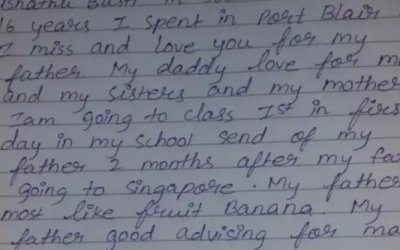 Bhathu Basti in
16 years I spent in Port Blair
I miss and love you for my
father. My daddy love for m
and my sisters and my mother
I am going to class 1st in firs
day in my school send of my
father 2 months after my fa
going to Singapore. My father
most like fruit Banana. My
father good advising for ma